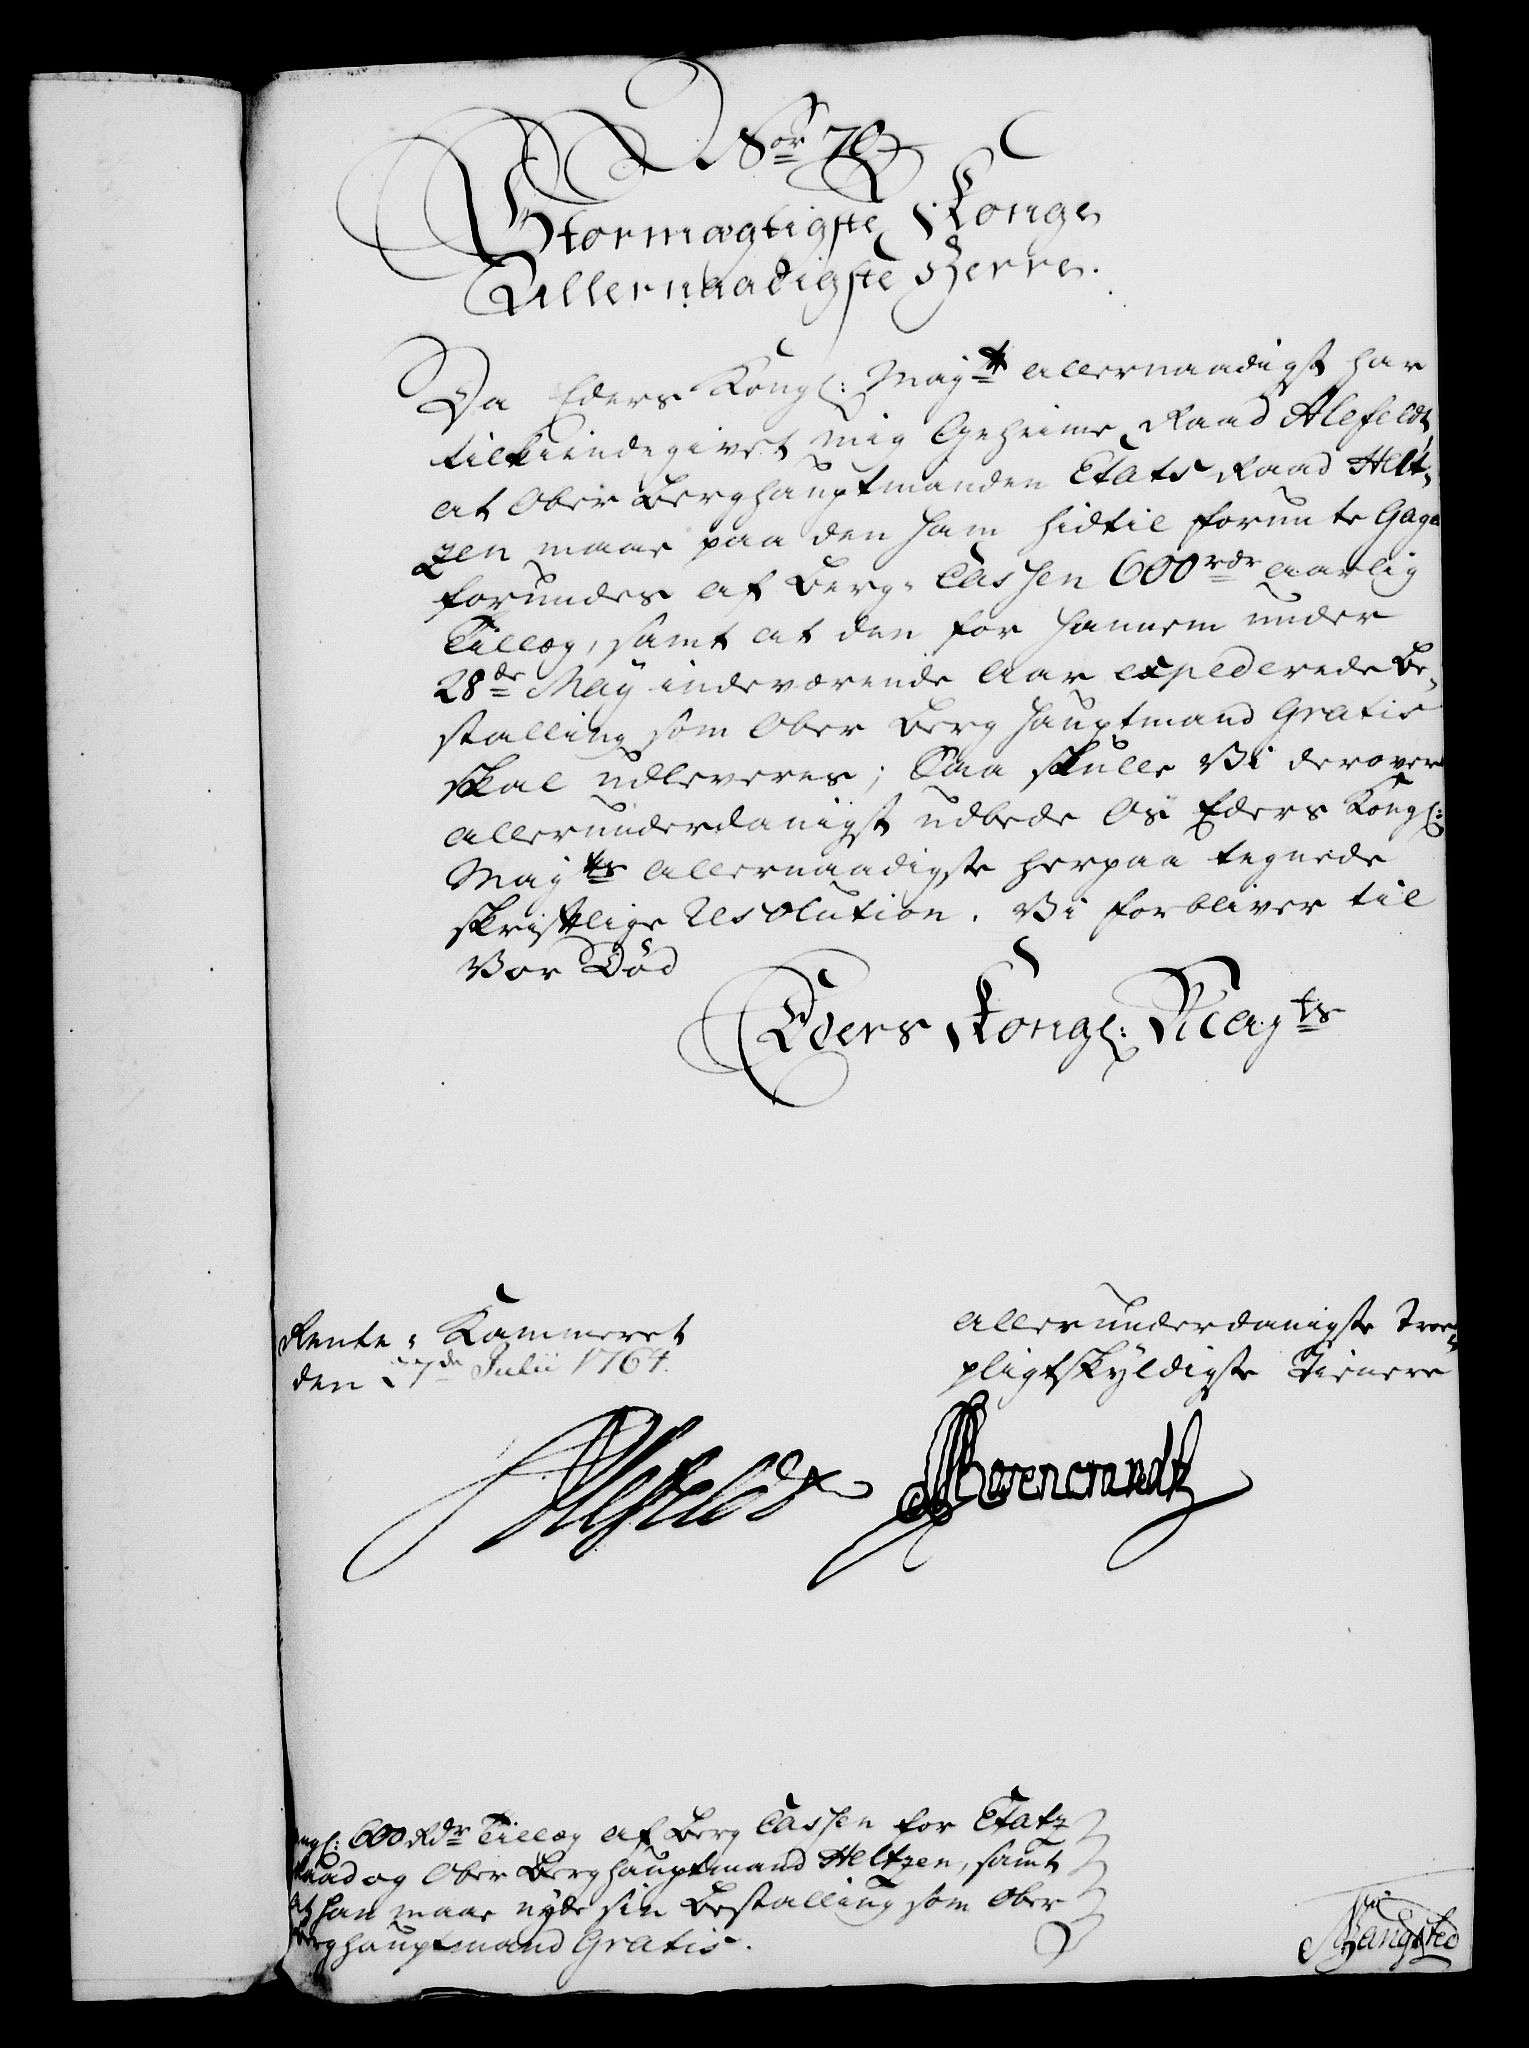 Stormægtigste Konge
Allernaadigste Herre.
Da Eders Kongl: Majt allernaadigst har
tilkiendegivet mig Geheime Raad Alefeldt,
at Ober Berghauptmanden Etats Raad Helt-
zen maae paa den ham hidtil forunte Gage
forundes af Berg-Cassen 600 rdr aarlig
Tillæg, samt at den for hannem under
28de May indeværende Aar expederede Be-
stalling som Ober Berg Hauptmand Gratis
skal udleveres; Saa skulle Vi derover
allerunderdanigst udbede Os Eders Kongl:
Majts allernaadigste herpaa tegnede
skriftlige Resolution. Vi forbliver til
Vor Død
Eders Kongl: Mayts
Rente-Kammeret
den 27de Julii 1764.
allerunderdanigste Troe-
pligtskyldigste Tienere
Alefeldt
600 Rdr Tillæg af Berg Cassen for Etatz
Raad og Ober Berghauptmand Heltzen, samt
at han maae nyde sin Bestalling som Ober
Berghauptmand Gratis.